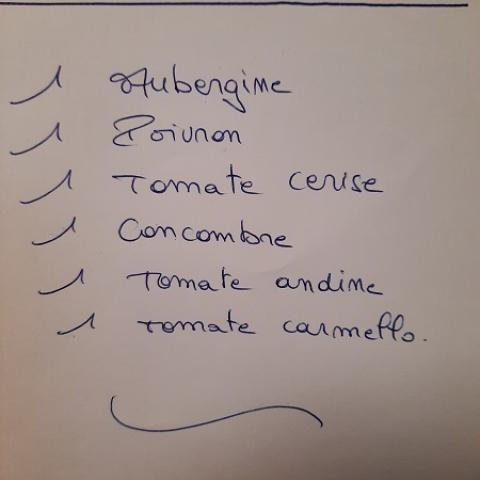 1 Aubergine
1 Poivron
1 Tomate cerise
1 Concombre
1 Tomate andine
1 tomate carmello.